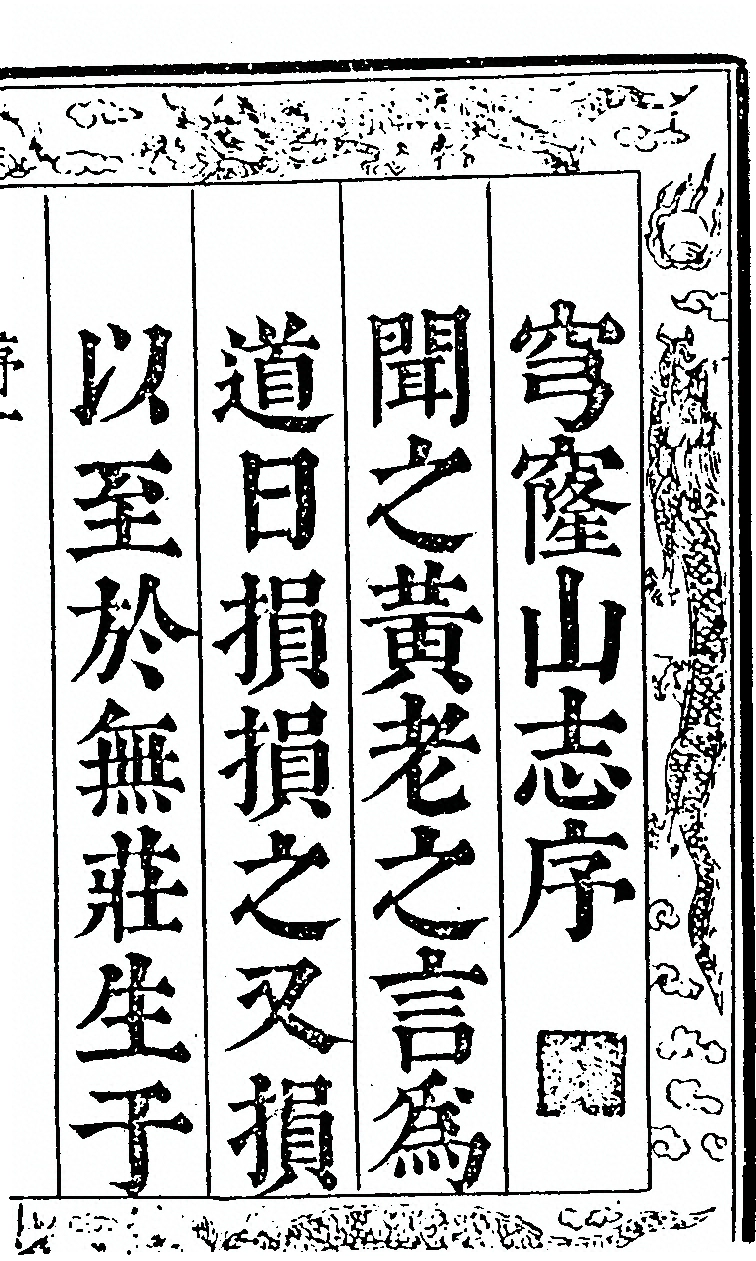 穹窿山志序
聞之黃老之言為
道日損損之又損
以至於無莊生于
序一